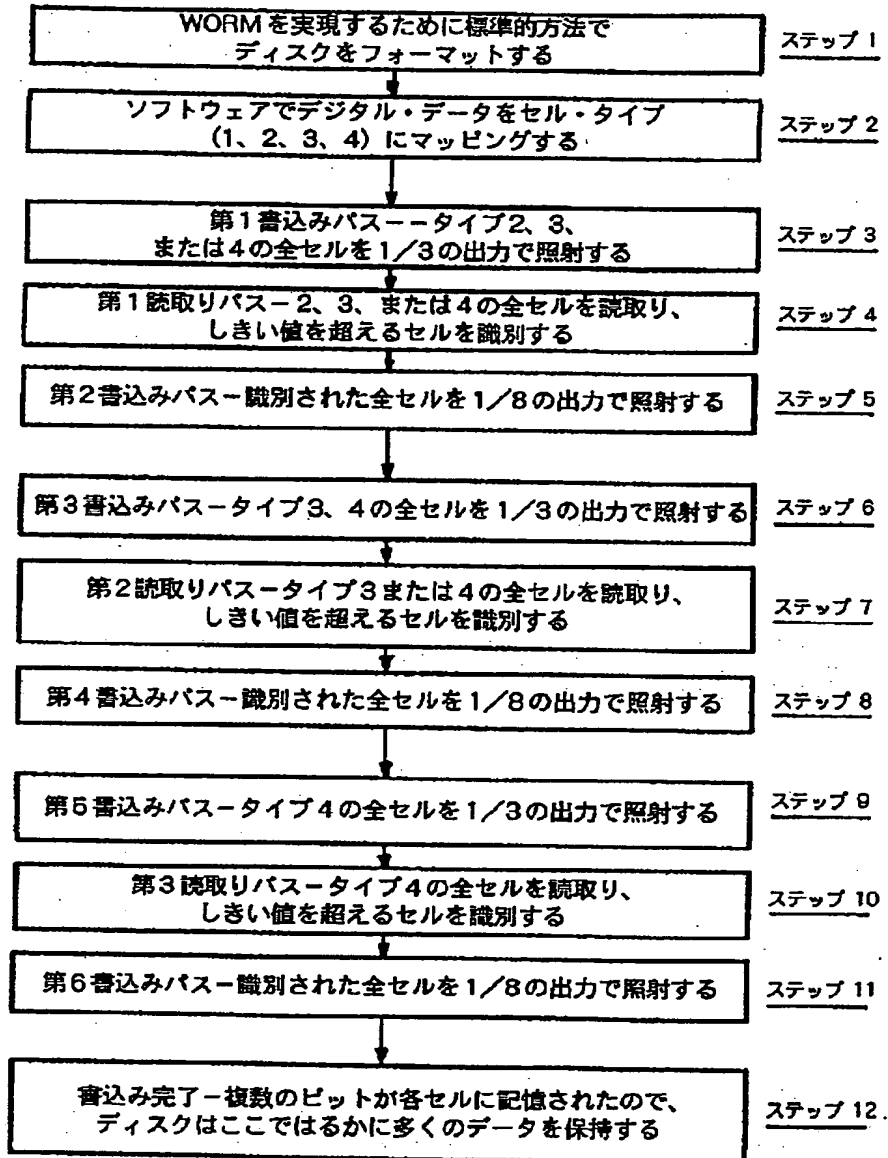 WORMを実現するために標準的方法で
ディスクをフォーマットする
ステップ 1
ソフトウェアでデジタル・データをセル・タイプ
(1、2、3、4)にマッピングする
ステップ 2
第1書込みパスーータイプ2、3、
または4の全セルを1/3の出力で照射する
ステップ 3
第1読取りパスー2、3、または4の全セルを読取り、
しきい値を超えるセルを識別する
ステップ 4
第2書込みパスー識別された全セルを1/8の出力で照射する
ステップ 5
第3書込みパスータイプ3、4の全セルを1/3の出力で照射する
ステップ 6
第2読取りパスータイプ3または4の全セルを読取り、
しきい値を超えるセルを識別する
ステップ 7
第4書込みパスー識別された全セルを1/8の出力で照射する
ステップ 8
第5書込みパスータイプ4の全セルを1/3の出力で照射する
ステップ 9
第3読取りパスータイプ4の全セルを読取り、
しきい値を超えるセルを識別する
ステップ 10
第6書込みパスー識別された全セルを1/8の出力で照射する
ステップ 11
書込み完了ー複数のビットが各セルに記憶されたので、
ディスクはここではるかに多くのデータを保持する
ステップ 12.